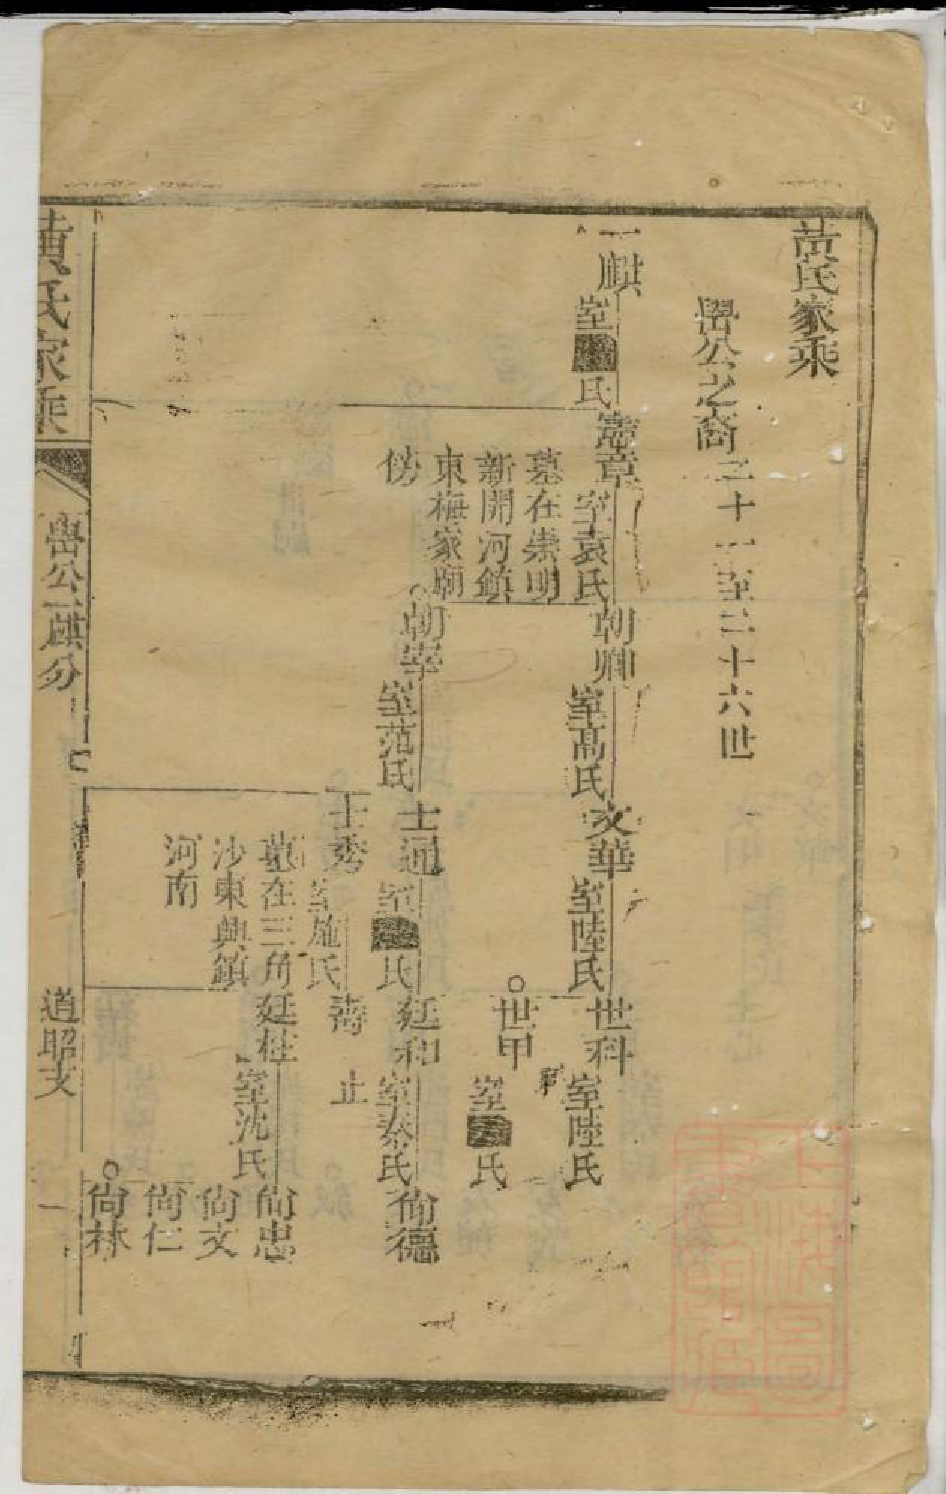 黃氏家乘
嚳公之裔二十一至二十六世
一麒
室■氏
憲章
室袁氏
墓在崇明
新開河鎮
東梅家廟
傍
朝卿
室高氏
朝宰
室范氏
文華
室陸氏
士通
室■氏
士秀
室施氏
墓在三角
沙東興鎮
河南
世科
室陸氏
世甲
室■氏
廷和
室秦氏
壽 止
廷柱
室沈氏
尙德
尙忠
尙文
尙仁
尙林
黃氏家乘
嚳公一麒分
道昭支
一